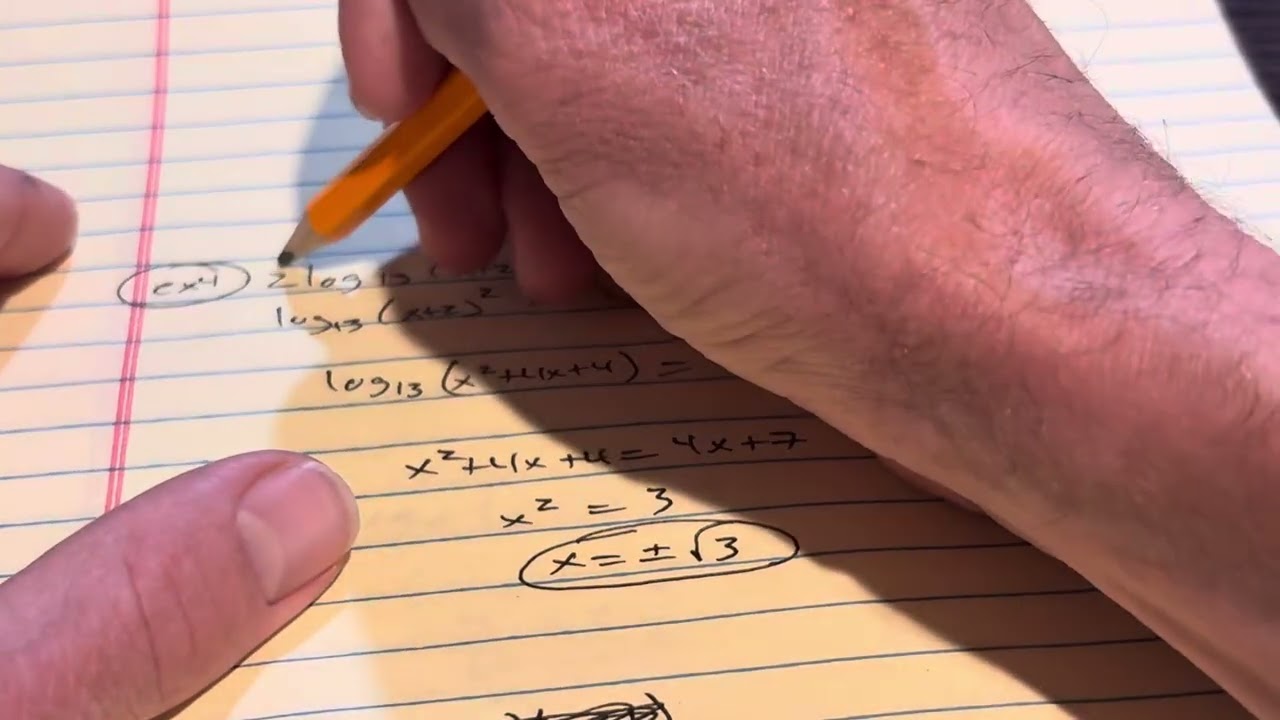 ex4 2log₁₃
log₁₃(x+2)²
log₁₃(x²+4x+4) =
x²+4x+4 = 4x+7
x² = 3
x = ±√3